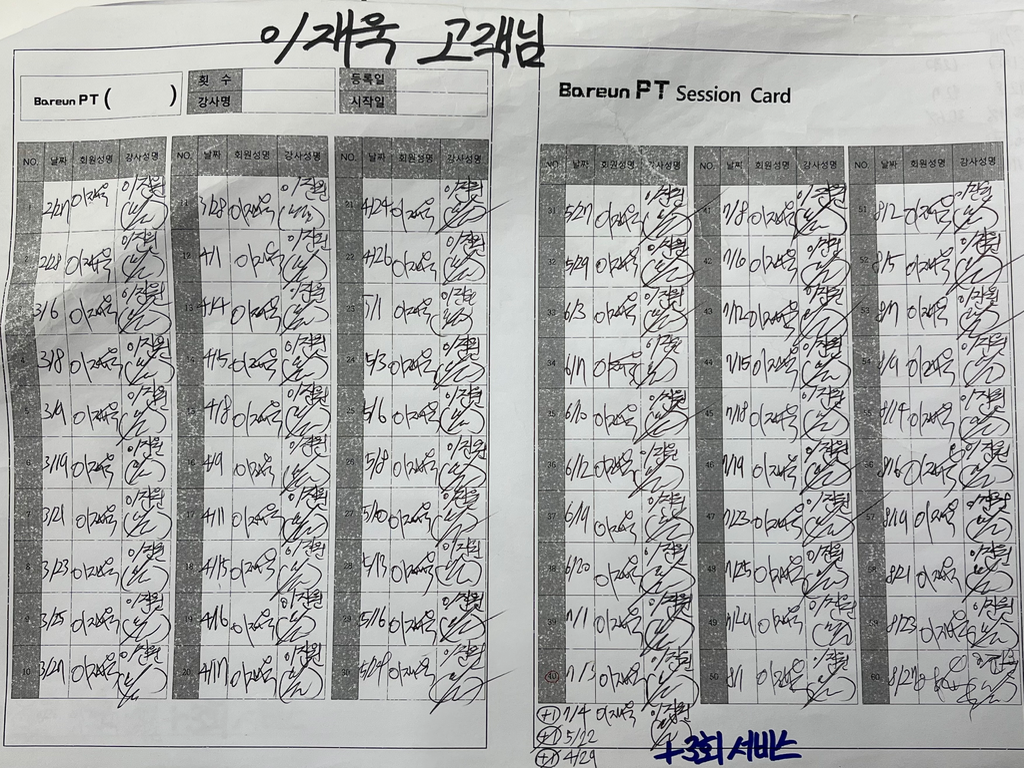 이재욱 고객님
Bareun PT ( )
횟 수
등록일
강사명
시작일
Bareun PT Session Card
NO. 날짜 회원성명 강사성명 NO. 날짜 회원성명 강사성명 NO. 날짜 회원성명 강사성명
1 2/27 이재욱 이진원 11 3/28 이재욱 이진원 21 4/24 이재욱 이진원
2 2/28 이재욱 이진원 12 4/1 이재욱 이진원 22 4/26 이재욱 이진원
3 3/6 이재욱 이진원 13 4/4 이재욱 이진원 23 5/1 이재욱 이진원
4 3/8 이재욱 이진원 14 4/5 이재욱 이진원 24 5/3 이재욱 이진원
5 3/9 이재욱 이진원 15 4/8 이재욱 이진원 25 5/6 이재욱 이진원
6 3/19 이재욱 이진원 16 4/9 이재욱 이진원 26 5/8 이재욱 이진원
7 3/21 이재욱 이진원 17 4/11 이재욱 이진원 27 5/10 이재욱 이진원
8 3/23 이재욱 이진원 18 4/15 이재욱 이진원 28 5/13 이재욱 이진원
9 3/25 이재욱 이진원 19 4/16 이재욱 이진원 29 5/16 이재욱 이진원
10 3/27 이재욱 이진원 20 4/17 이재욱 이진원 30 이재욱 이진원
NO. 날짜 회원성명 강사성명 NO. 날짜 회원성명 강사성명 NO. 날짜 회원성명 강사성명
31 5/27 이재욱 이진원 41 7/8 이재욱 이진원 51 8/2 이재욱 이진원
32 5/29 이재욱 이진원 42 이재욱 이진원 52 8/5 이재욱 이진원
33 6/3 이재욱 이진원 43 7/12 이재욱 이진원 53 8/7 이재욱 이진원
34 이재욱 이진원 44 7/15 이재욱 이진원 54 8/9 이재욱 이진원
35 6/10 이재욱 이진원 45 7/18 이재욱 이진원 55 8/14 이재욱 이진원
36 6/12 이재욱 이진원 46 7/19 이재욱 이진원 56 8/16 이재욱 이진원
37 6/19 이재욱 이진원 47 7/23 이재욱 이진원 57 8/19 이재욱 이진원
38 6/20 이재욱 이진원 48 7/25 이재욱 이진원 58 8/21 이재욱 이진원
39 7/1 이재욱 이진원 49 이재욱 이진원 59 8/23 이재욱 이진원
40 7/3 이재욱 이진원 50 8/1 이재욱 이진원 60 8/27
+1 7/4 이재욱 이진원
+1 5/22
+1 4/29
+3회 서비스